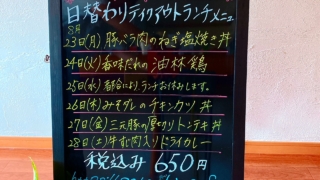 日替わりテイクアウトランチメニュー
8月
23日(月) 豚バラ肉のねぎ塩焼き丼
24日(火) 香味だれの油淋鶏
25日(水) 都合によりランチお休みします。
26日(木) みそダレのチキンカツ丼
27日(金) 三元豚の厚切りトンテキ丼
28日(土) 牛すじ肉入りドライカレー
税込み 650円